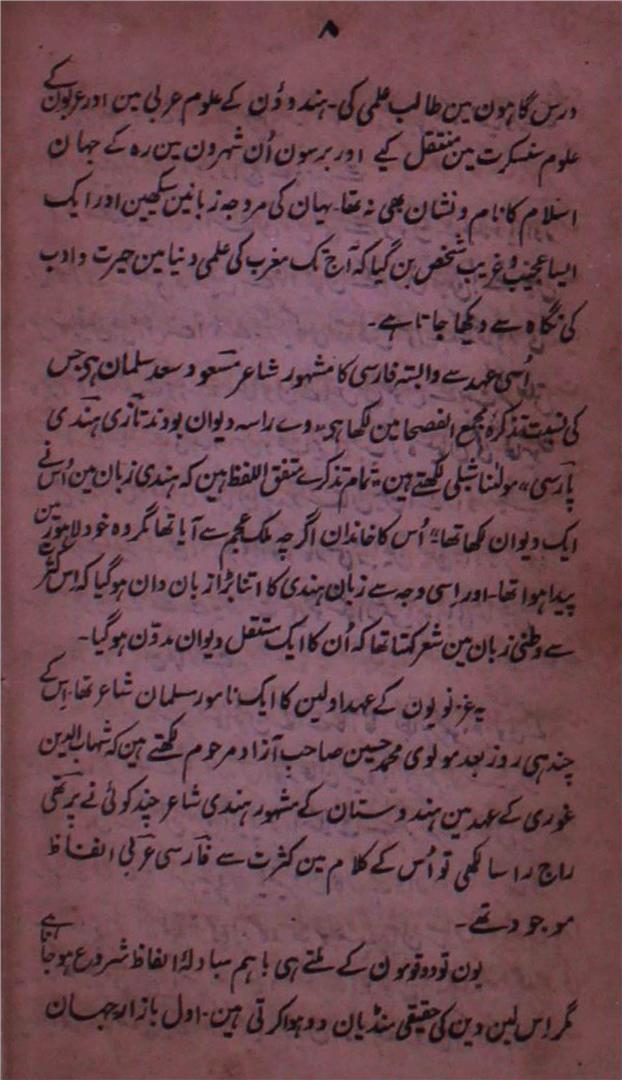 ۸
درس گاہون مین طالب علمی کی۔ ہندوؤن کے علوم عربی مین اور عربون کے
علوم سنسکرت مین منتقل کیے اور برسون اُن شہرون مین رہ کے جہان
اسلام کا نام و نشان بھی نہ تھا۔ یہان کی مروجہ زبانین سیکھین اور ایک
ایسا عجیب و غریب شخص بن گیا کہ آج تک مغرب کی علمی دنیا مین حیرت و ادب
کی نگاہ سے دیکھا جاتا ہے۔
اُسی عہد سے وابستہ فارسی کا مشہور شاعر مسعود سعد سلمان ہی جس
کی نسبت تذکرۂ مجمع الفصحا مین لکھا ہی "وے را سہ دیوان بودند تازی ہندی
پارسی" مولٰنا شبلی لکھتے ہین "تمام تذکرے متفق اللفظ ہین کہ ہندی زبان مین اُس نے
ایک دیوان لکھا تھا" اُس کا خاندان اگرچہ ملک عجم سے آیا تھا مگر وہ خود لاہور مین
پیدا ہوا تھا۔ اور اسی وجہ سے زبان ہندی کا اتنا بڑا زبان دان ہو گیا کہ اِس کثرت
سے وطنی زبان مین شعر کہتا تھا کہ اُن کا ایک مستقل دیوان مدوّن ہو گیا۔
یہ غزنویون کے عہد اولین کا ایک نامور مسلمان شاعر تھا۔ اِس کے
چند ہی روز بعد مولوی محمد حسین صاحب آزاد مرحوم لکھتے ہین کہ شہاب الدین
غوری کے عہد مین ہندوستان کے مشہور ہندی شاعر چند کوئی نے پرتھی
راج راسا لکھی تو اُس کے کلام مین کثرت سے فارسی عربی الفاظ
موجود تھے۔
یون تو دو قومون کے ملتے ہی باہم مبادلۂ الفاظ شروع ہو جاتا ہے
مگر اِس لین دین کی حقیقی منڈیان دو ہوا کرتی ہین۔ اول بازار جہان